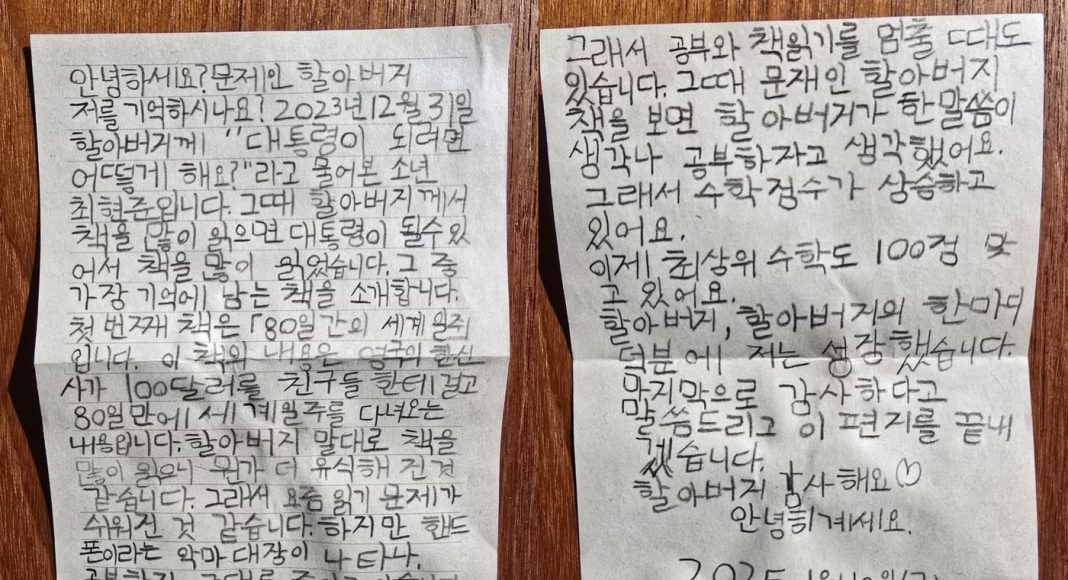 안녕하세요? 문제인 할아버지
저를 기억하시나요? 2023년 12월 31일
할아버지께 "대통령이 되려면
어떻게 해요?"라고 물어본 소년
최현준입니다. 그때 할아버지께서
책을 많이 읽으면 대통령이 될수있
어서 책을 많이 읽었습니다. 그 중
가장 기억에 남는 책을 소개합니다.
첫 번째 책은 「80일간의 세계일주
입니다. 이 책의 내용은 영국의 한신
사가 100달러를 친구들 한테 걸고
80일만에 세계일주를 다녀오는
내용입니다. 할아버지 말대로 책을
많이 읽으니 뭔가 더 유식해 진 것
같습니다. 그래서 요즘 읽기 문제가
쉬워진 것 같습니다. 하지만 핸드
폰이라는 악마 대장이 나타나.
그래서 공부와 책읽기를 멈출 때도
있습니다. 그때 문재인 할아버지
책을 보면 할아버지가 한말씀이
생각나 공부하자고 생각했어요.
그래서 수학점수가 상승하고
있어요.
이제 최상위수학도 100점 맞
고 있어요.
할아버지, 할아버지의 한마디
덕분에 저는 성장했습니다.
막지막으로 감사하다고
말씀드리고 이 편지를 끝내
겠습니다.
할아버지 감사해요♡
안녕히계세요.
2025